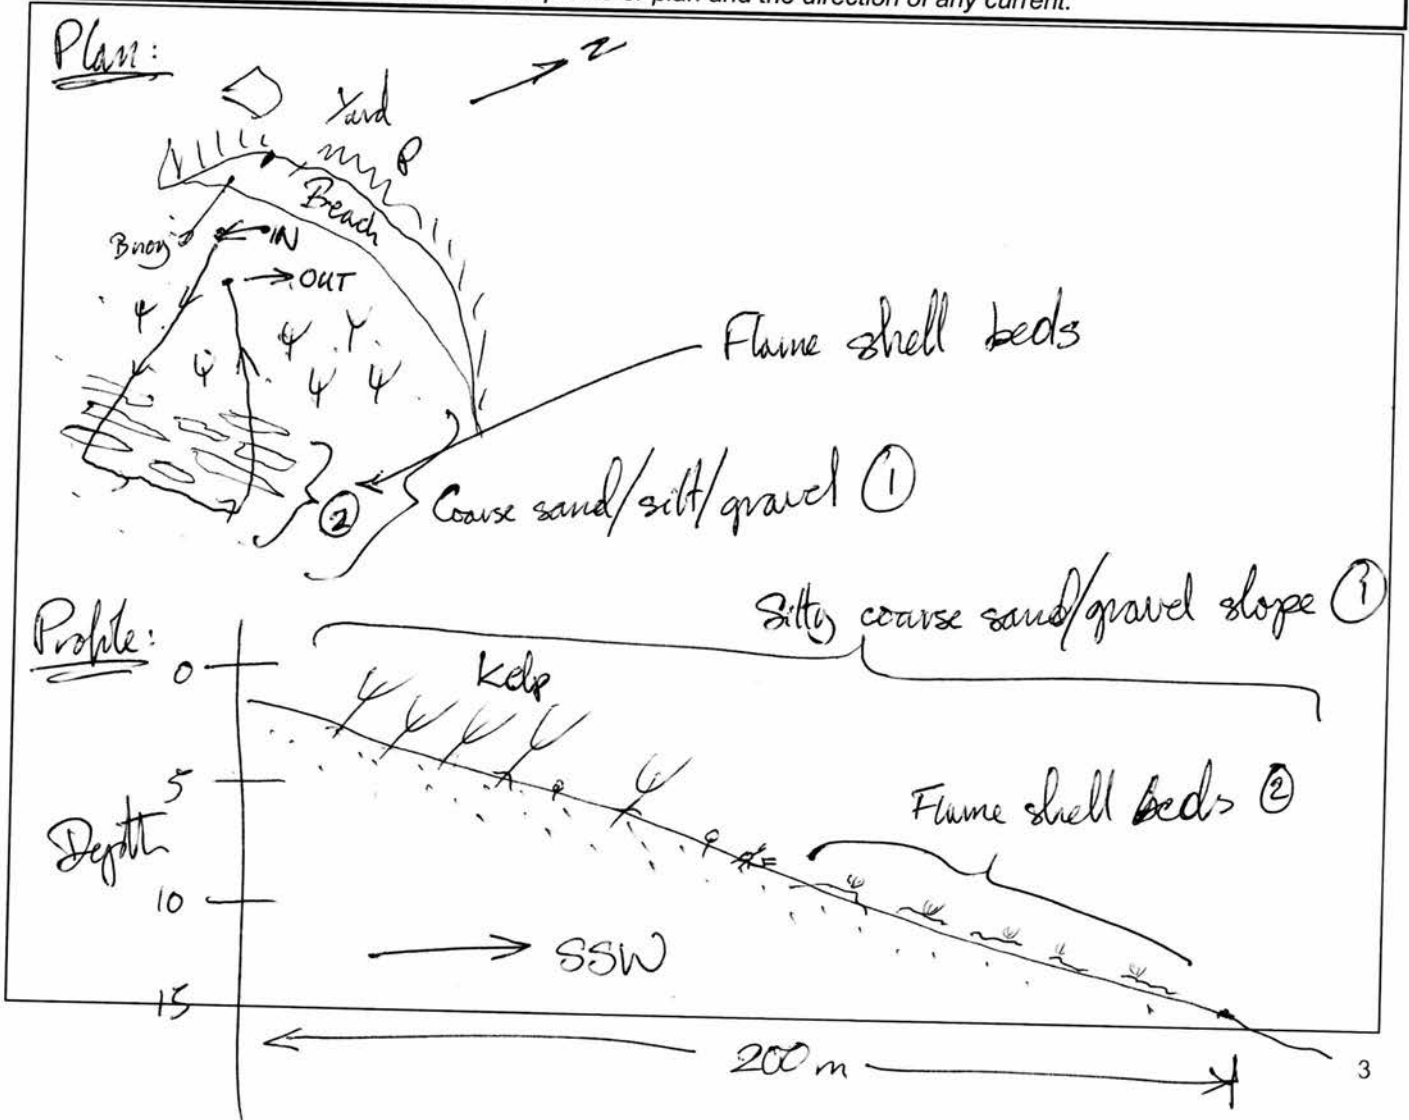 plan and the direction of any current.
Plan:
N
Yard
P
Beach
Buoy
IN
OUT
Flame shell beds
Coarse sand/silt/gravel ①
②
Silty coarse sand/gravel slope ①
Profile:
0
Kelp
5
Flame shell beds ②
Depth
10
SSW
15
200m
3